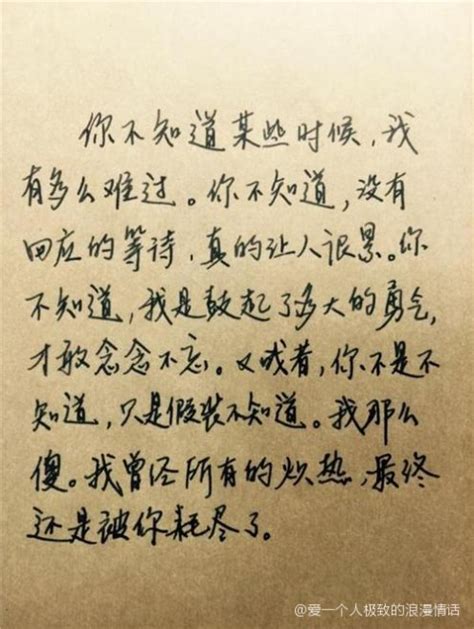 你不知道某些时候,我
有多么难过。你不知道,没有
回应的等待,真的让人很累。你
不知道,我是鼓起了多大的勇气,
才敢念念不忘。又或者,你不是不
知道,只是假装不知道。我那么
傻。我曾经所有的炽热,最终
还是被你耗尽了。
@爱一个人极致的浪漫情话